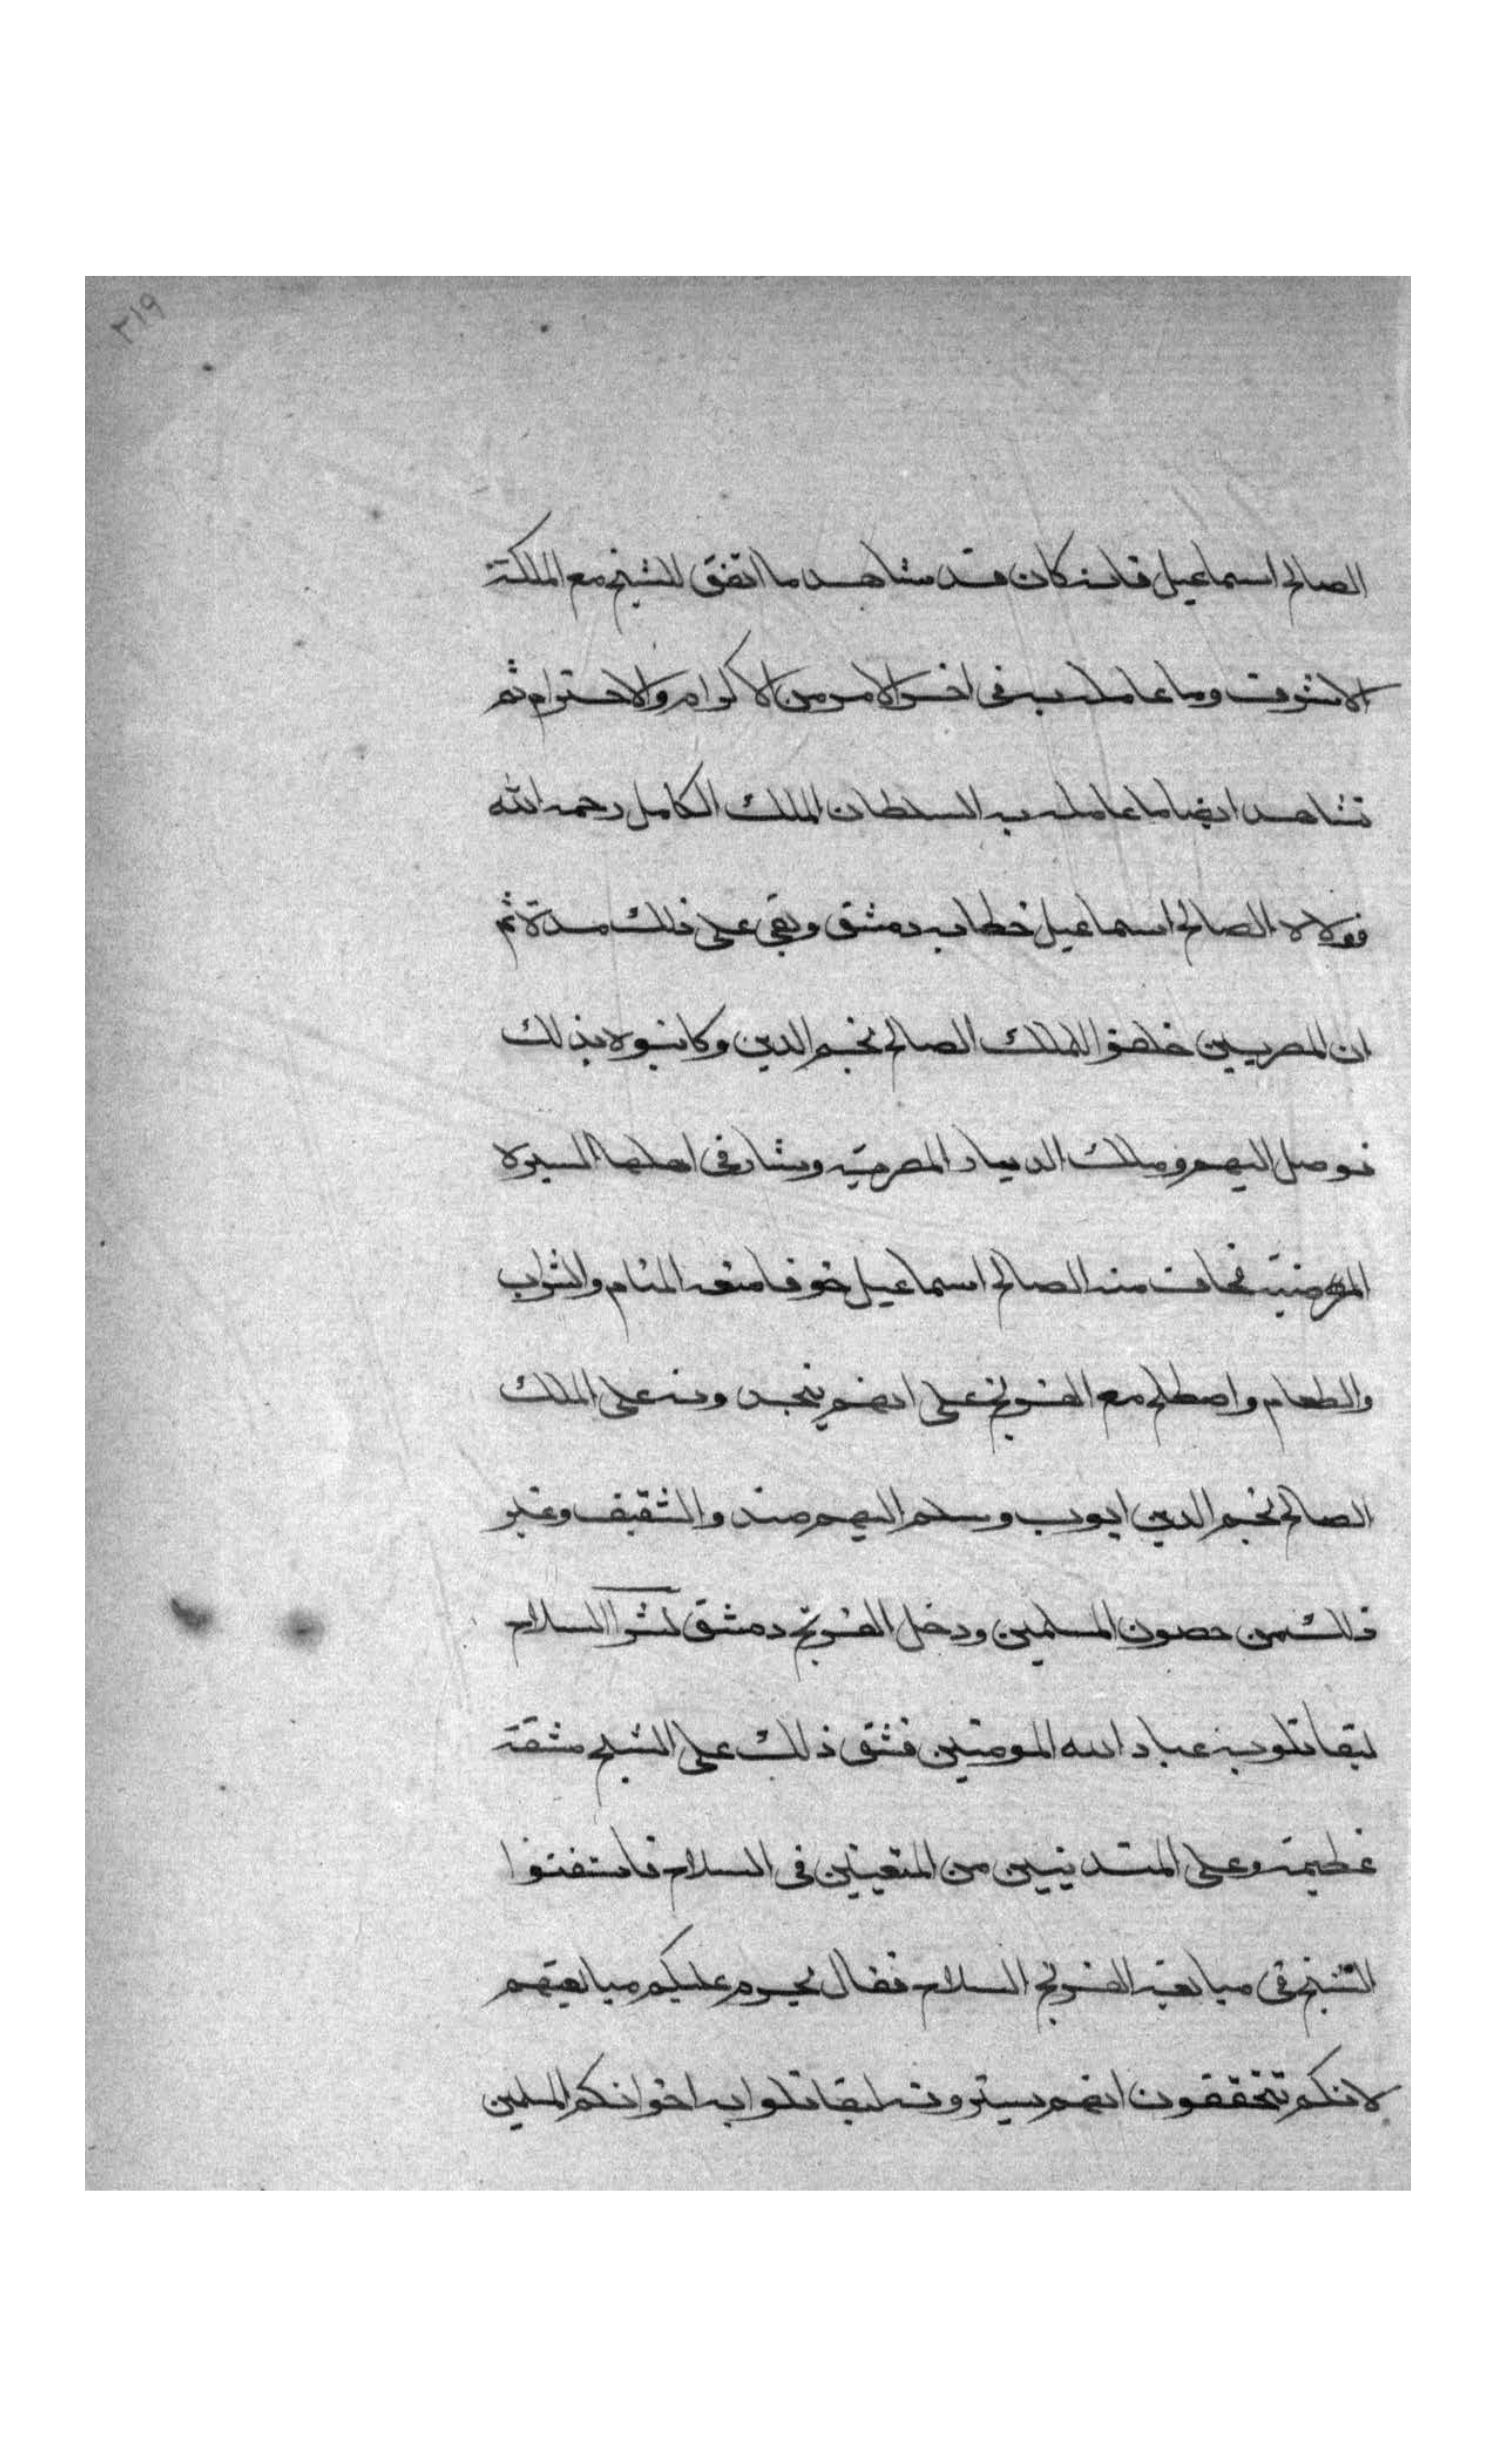 ٣١٩
الصالح اسماعيل فانه كان قد شاهد ما اتفق للشيخ مع الملكة
الاشرف وما عامله به فى اخر الامر من الاكرام والاحترام ثم
تشاهد ايضا ما عامله به السلطان الملك الكامل رحمه الله
فولاه الصالح اسماعيل خطابه دمشق وبقى على ذلك مدة ثم
ان المصريين خلفوا للملك الصالح نجم الدين وكاتبوه بذلك
فوصل اليهم وملك الديار المصريه وسار فى اهلها السيرة
المرضية فخاف منه الصالح اسماعيل خوفا منعه المنام والشراب
والطعام واصطلح مع الفرنج على انهم ينجدونه على الملك
الصالح نجم الدين ايوب وسلم اليهم صفد والشقيف وغير
ذلك من حصون المسلمين ودخل الفرنج دمشق لشرا السلاح
ليقاتلون به عباد الله المومنين فشق ذلك على الشيخ مشقة
عظيمة وعلى المتدينين من المتعينين فى السلاح فاستفتوا
الشيخ فى مبايعة الفرنج السلاح فقال يحرم عليكم مبايعتهم
لانكم تتحققون انهم يشترونه ليقاتلوا به اخوانكم المسلمين